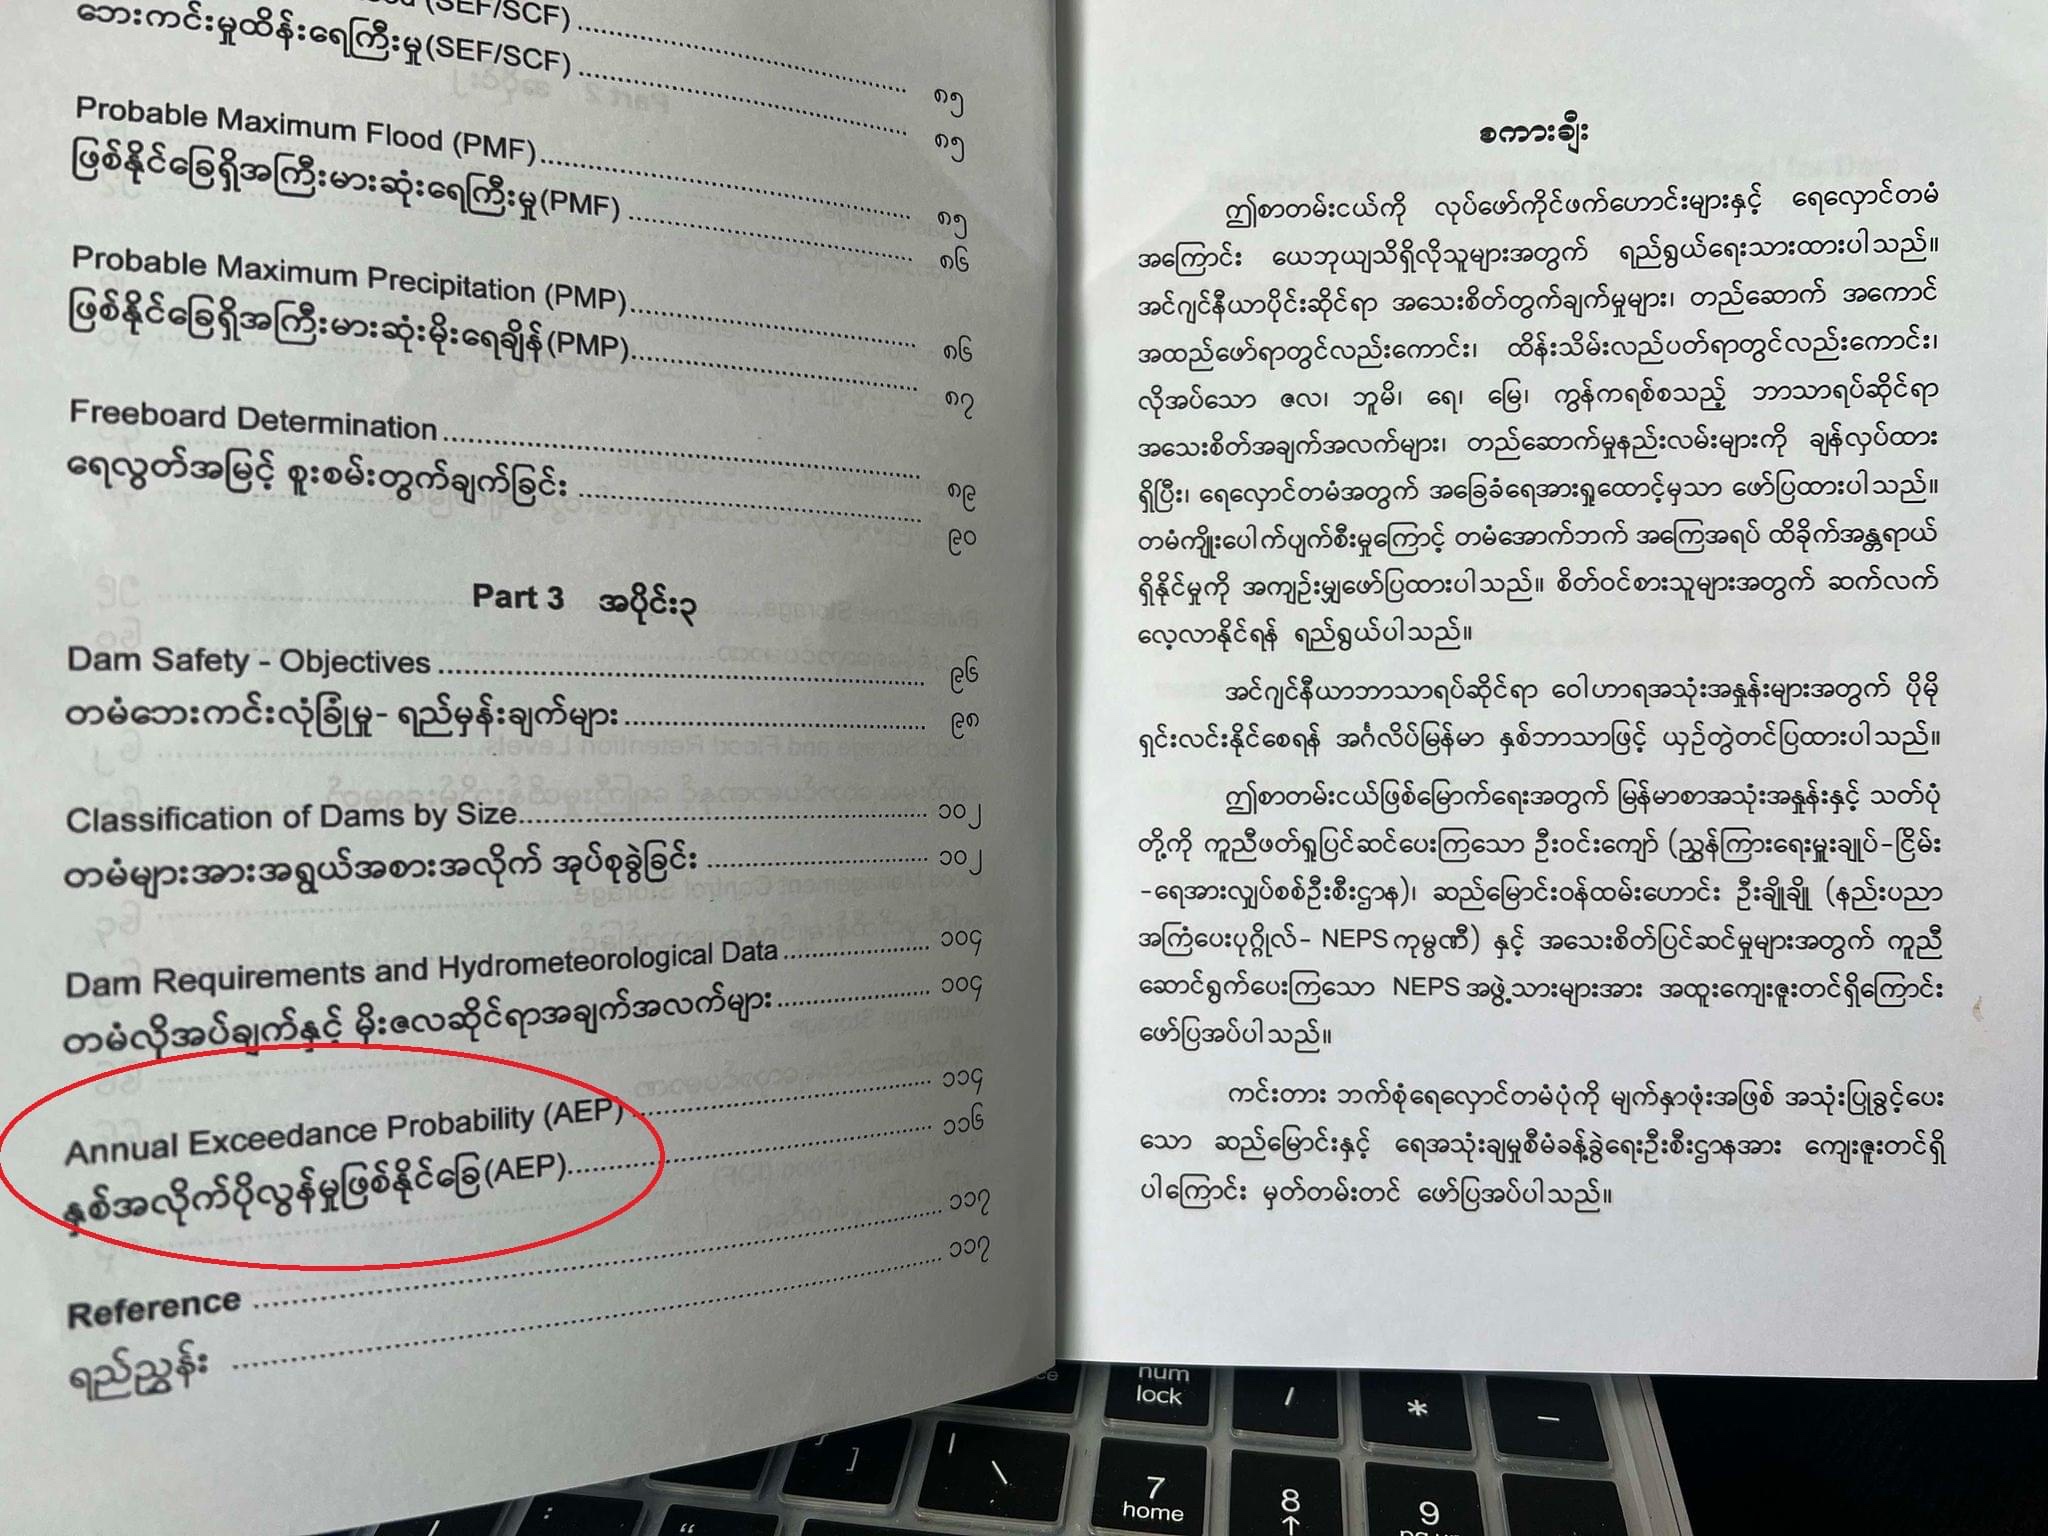 (SEF/SCF) ........ ၈၅
ဘေးကင်းမှုထိန်းရေကြီးမှု(SEF/SCF) ........ ၈၅
Probable Maximum Flood (PMF) ........ ၈၅
ဖြစ်နိုင်ခြေရှိအကြီးမားဆုံးရေကြီးမှု(PMF) ........ ၈၆
Probable Maximum Precipitation (PMP) ........ ၈၆
ဖြစ်နိုင်ခြေရှိအကြီးမားဆုံးမိုးရေချိန်(PMP) ........ ၈၇
Freeboard Determination ........ ၈၉
ရေလွတ်အမြင့် စူးစမ်းတွက်ချက်ခြင်း ........ ၉၀
Part 3 အပိုင်း၃
Dam Safety - Objectives ........ ၉၆
တမံဘေးကင်းလုံခြုံမှု- ရည်မှန်းချက်များ ........ ၉၈
Classification of Dams by Size ........ ၁၀၂
တမံများအားအရွယ်အစားအလိုက် အုပ်စုခွဲခြင်း ........ ၁၀၂
Dam Requirements and Hydrometeorological Data ........ ၁၀၄
တမံလိုအပ်ချက်နှင့် မိုးဇလဆိုင်ရာအချက်အလက်များ ........ ၁၀၄
Annual Exceedance Probability (AEP) ........ ၁၁၄
နှစ်အလိုက်ပိုလွန်မှုဖြစ်နိုင်ခြေ(AEP) ........ ၁၁၆
Reference ........ ၁၁၇
ရည်ညွှန်း ........ ၁၁၇
စကားချီး
ဤစာတမ်းငယ်ကို လုပ်ဖော်ကိုင်ဖက်ဟောင်းများနှင့် ရေလှောင်တမံ
အကြောင်း ယေဘုယျသိရှိလိုသူများအတွက် ရည်ရွယ်ရေးသားထားပါသည်။
အင်ဂျင်နီယာပိုင်းဆိုင်ရာ အသေးစိတ်တွက်ချက်မှုများ၊ တည်ဆောက် အကောင်
အထည်ဖော်ရာတွင်လည်းကောင်း၊ ထိန်းသိမ်းလည်ပတ်ရာတွင်လည်းကောင်း၊
လိုအပ်သော ဇလ၊ ဘူမိ၊ ရေ၊ မြေ၊ ကွန်ကရစ်စသည့် ဘာသာရပ်ဆိုင်ရာ
အသေးစိတ်အချက်အလက်များ၊ တည်ဆောက်မှုနည်းလမ်းများကို ချန်လှပ်ထား
ရှိပြီး၊ ရေလှောင်တမံအတွက် အခြေခံရေအားရှုထောင့်မှသာ ဖော်ပြထားပါသည်။
တမံကျိုးပေါက်ပျက်စီးမှုကြောင့် တမံအောက်ဘက် အကြေအရပ် ထိခိုက်အန္တရာယ်
ရှိနိုင်မှုကို အကျဉ်းမျှဖော်ပြထားပါသည်။ စိတ်ဝင်စားသူများအတွက် ဆက်လက်
လေ့လာနိုင်ရန် ရည်ရွယ်ပါသည်။
အင်ဂျင်နီယာဘာသာရပ်ဆိုင်ရာ ဝေါဟာရအသုံးအနှုန်းများအတွက် ပိုမို
ရှင်းလင်းနိုင်စေရန် အင်္ဂလိပ်မြန်မာ နှစ်ဘာသာဖြင့် ယှဉ်တွဲတင်ပြထားပါသည်။
ဤစာတမ်းငယ်ဖြစ်မြောက်ရေးအတွက် မြန်မာစာအသုံးအနှုန်းနှင့် သတ်ပုံ
တို့ကို ကူညီဖတ်ရှုပြင်ဆင်ပေးကြသော ဦးဝင်းကျော် (ညွှန်ကြားရေးမှူးချုပ်-ငြိမ်း
-ရေအားလျှပ်စစ်ဦးစီးဌာန)၊ ဆည်မြောင်းဝန်ထမ်းဟောင်း ဦးချိုချို (နည်းပညာ
အကြံပေးပုဂ္ဂိုလ်- NEPS ကုမ္ပဏီ) နှင့် အသေးစိတ်ပြင်ဆင်မှုများအတွက် ကူညီ
ဆောင်ရွက်ပေးကြသော NEPS အဖွဲ့သားများအား အထူးကျေးဇူးတင်ရှိကြောင်း
ဖော်ပြအပ်ပါသည်။
ကင်းတား ဘက်စုံရေလှောင်တမံပုံကို မျက်နှာဖုံးအဖြစ် အသုံးပြုခွင့်ပေး
သော ဆည်မြောင်းနှင့် ရေအသုံးချမှုစီမံခန့်ခွဲရေးဦးစီးဌာနအား ကျေးဇူးတင်ရှိ
ပါကြောင်း မှတ်တမ်းတင် ဖော်ပြအပ်ပါသည်။
num
lock
/
*
–
]
|
\
7
home
8
↑
9
:
“